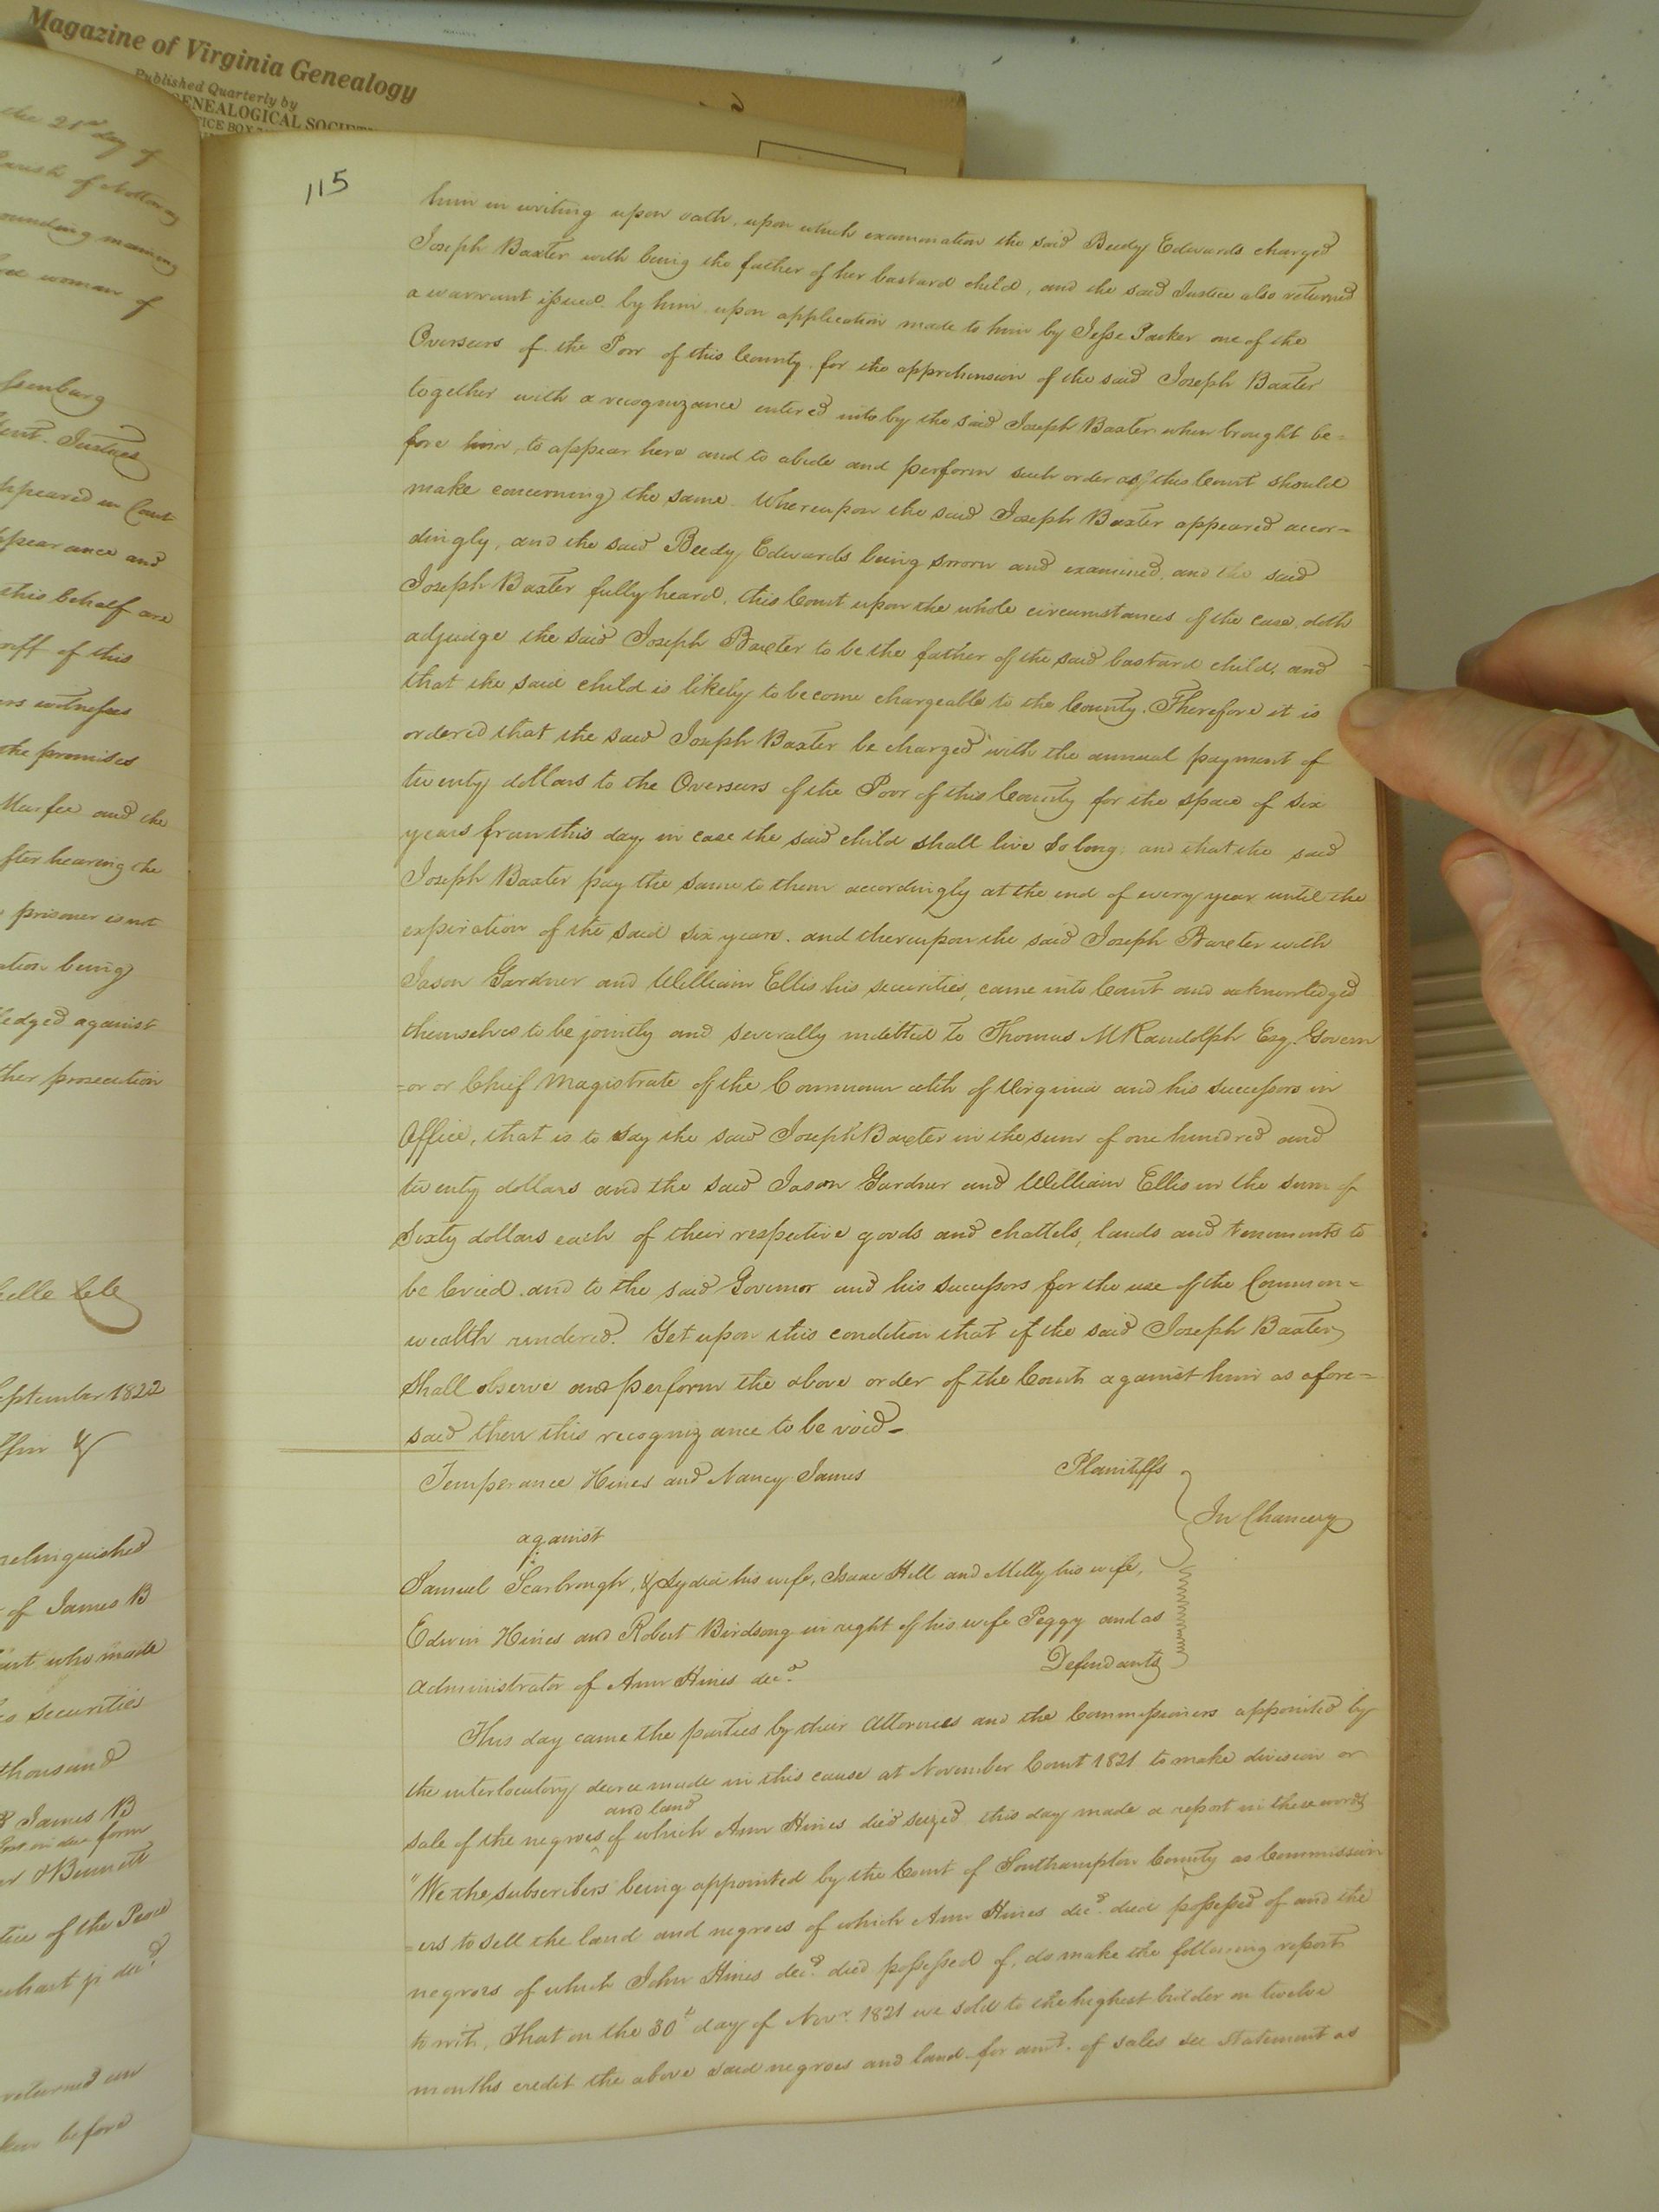 Magazine of Virginia Genealogy
Published Quarterly by
GENEALOGICAL SOCIETY
the 21st day of
of Nottoway
woman of
Justices
appeared in Court
appearance and
this behalf are
of this
witnesses
the premises
Murfee and the
after hearing the
prisoner is not
being
against
prosecution
September 1822
&
relinquished
of James B
who made
securities
thousand
& James B
in due form
Bennett
of the Peace
decd
returned an
before
115
him in writing upon oath, upon which examination the said Beedy Edwards charged
Joseph Baxter with being the father of her bastard child, and the said Justice also returned
a warrant issued by him upon application made to him by Jesse Parker one of the
Overseers of the Poor of this County for the apprehension of the said Joseph Baxter
together with a recognizance entered into by the said Joseph Baxter when brought be=
fore him, to appear here and to abide and perform such order as this Court should
make concerning the same. Whereupon the said Joseph Baxter appeared accor=
dingly, and the said Beedy Edwards being sworn and examined, and the said
Joseph Baxter fully heard, this Court upon the whole circumstances of the case, doth
adjudge the said Joseph Baxter to be the father of the said bastard child, and
that the said child is likely to become chargeable to the County. Therefore it is
ordered that the said Joseph Baxter be charged with the annual payment of
twenty dollars to the Overseers of the Poor of this County for the space of six
years from this day, in case the said child shall live so long, and that the said
Joseph Baxter pay the same to them accordingly at the end of every year until the
expiration of the said six years. and thereupon the said Joseph Baxter with
Jason Gardner and William Ellis his securities, came into Court and acknowledged
themselves to be jointly and severally indebted to Thomas M Randolph Esq. Govern
=or or Chief Magistrate of the Commonwealth of Virginia and his successors in
Office, that is to say the said Joseph Baxter in the sum of one hundred and
twenty dollars and the said Jason Gardner and William Ellis in the sum of
Sixty dollars each of their respective goods and chattels, lands and tenements to
be levied and to the said Governor and his successors for the use of the Common=
wealth rendered. Yet upon this condition that if the said Joseph Baxter
shall observe and perform the above order of the Court against him as afore=
said then this recognizance to be void-
Temperance Hines and Nancy James Plaintiffs
In Chancery
against
Samuel Scarbrough, & Lydia his wife, Isaac Hill and Milly his wife,
Edwin Hines and Robert Birdsong in right of his wife Peggy and as
administrator of Ann Hines decd Defendants
This day came the parties by their Attornies and the Commissioners appointed by
the interlocutory decree made in this cause at November Court 1821 to make division or
and land
sale of the negroes of which Ann Hines died seized this day made a report in these words
"We the subscribers being appointed by the Court of Southampton County as Commission
=ers to sell the land and negroes of which Ann Hines decd. died possessed of and the
negroes of which John Hines decd. died possessed of, do make the following report
to wit, That on the 30th day of Novr 1821 we sold to the highest bidder on twelve
months credit the above said negroes and land for amt. of sales see Statement as